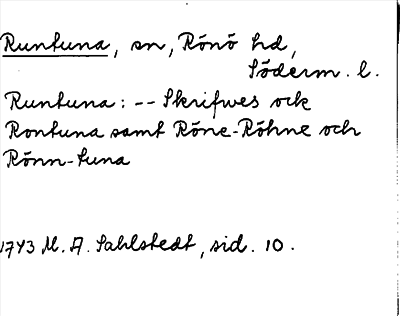 Runtuna, sn, Rönö hd,
Söderm. l.
Runtuna: -- Skrifwes ock
Rontuna samt Röne-Röhne och
Rönn-tuna
1743 M. A. Sahlstedt, sid. 10.